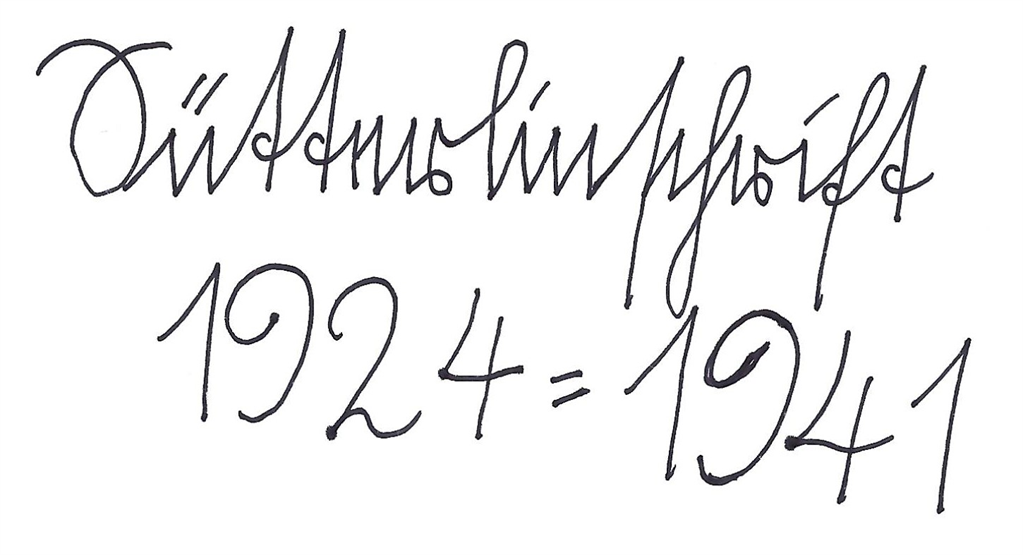 Sütterlinschrift
1924=1941